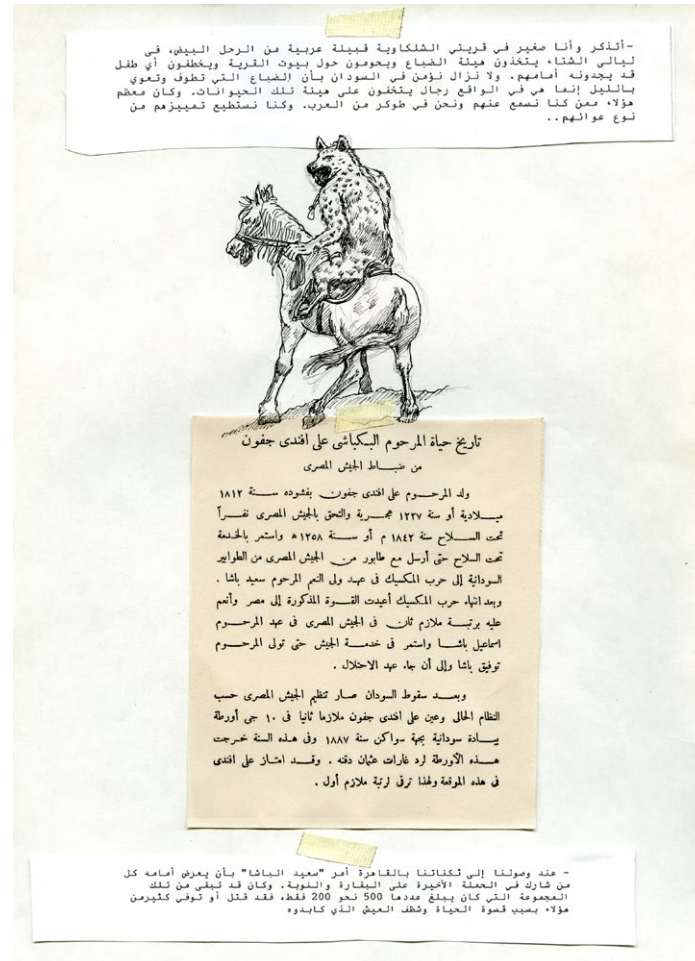 -أتذكر وأنا صغير في قريتي الشلكاوية قبيلة عربية من الرحل البيض، فى
ليالى الشتاء يتخذون هيئة الضباع ويحومون حول بيوت القرية ويخطفون أي طفل
قد يجدونه أمامهم. ولا نزال نؤمن في السودان بأن الضباع التي تطوف وتعوي
بالليل إنما هي في الواقع رجال يتخفون على هيئة تلك الحيوانات. وكان معظم
هؤلاء ممن كنا نسمع عنهم ونحن في طوكر من العرب. وكنا نستطيع تمييزهم من
نوع عوائهم..
تاريخ حياة المرحوم البكباشى على افندى جفون
من ضباط الجيش المصرى
ولد المرحوم على افندى جفون بفشوده سنة ١٨١٢
ميلادية أو سنة ١٢٢٧ هجرية والتحق بالجيش المصرى نفراً
تحت السلاح سنة ١٨٤٢ م أو سنة ١٢٥٨ ه واستمر بالخدمة
تحت السلاح حتى أرسل مع طابور من الجيش المصرى من الطوابير
السودانية إلى حرب المكسيك فى عهد ولى النعم المرحوم سعيد باشا .
وبعد انتهاء حرب المكسيك أعيدت القوة المذكورة إلى مصر وأنعم
عليه برتبة ملازم ثان فى الجيش المصرى فى عهد المرحوم
اسماعيل باشا واستمر فى خدمة الجيش حتى تولى المرحوم
توفيق باشا وإلى أن جاء عهد الاحتلال .
وبعد سقوط السودان صار تنظيم الجيش المصرى حسب
النظام الحالى وعين على افندى جفون ملازما ثانيا فى ١٠ جى أورطة
بيادة سودانية بجهة سواكن سنة ١٨٨٧ وفى هذه السنة خرجت
هذه الأورطة لرد غارات عثمان دقنه . وقد امتاز على افندى
فى هذه الموقعة ولهذا ترقى لرتبة ملازم أول .
- عند وصولنا إلى ثكناتنا بالقاهرة أمر "سعيد الباشا" بأن يعرض أمامه كل
من شارك في الحملة الأخيرة على البقارة والنوبة. وكان قد تبقى من تلك
المجموعة التي كان يبلغ عددها 500 نحو 200 فقط، فقد قتل أو توفي كثيرمن
هؤلاء بسبب قسوة الحياة وشظف العيش الذي كابدوه